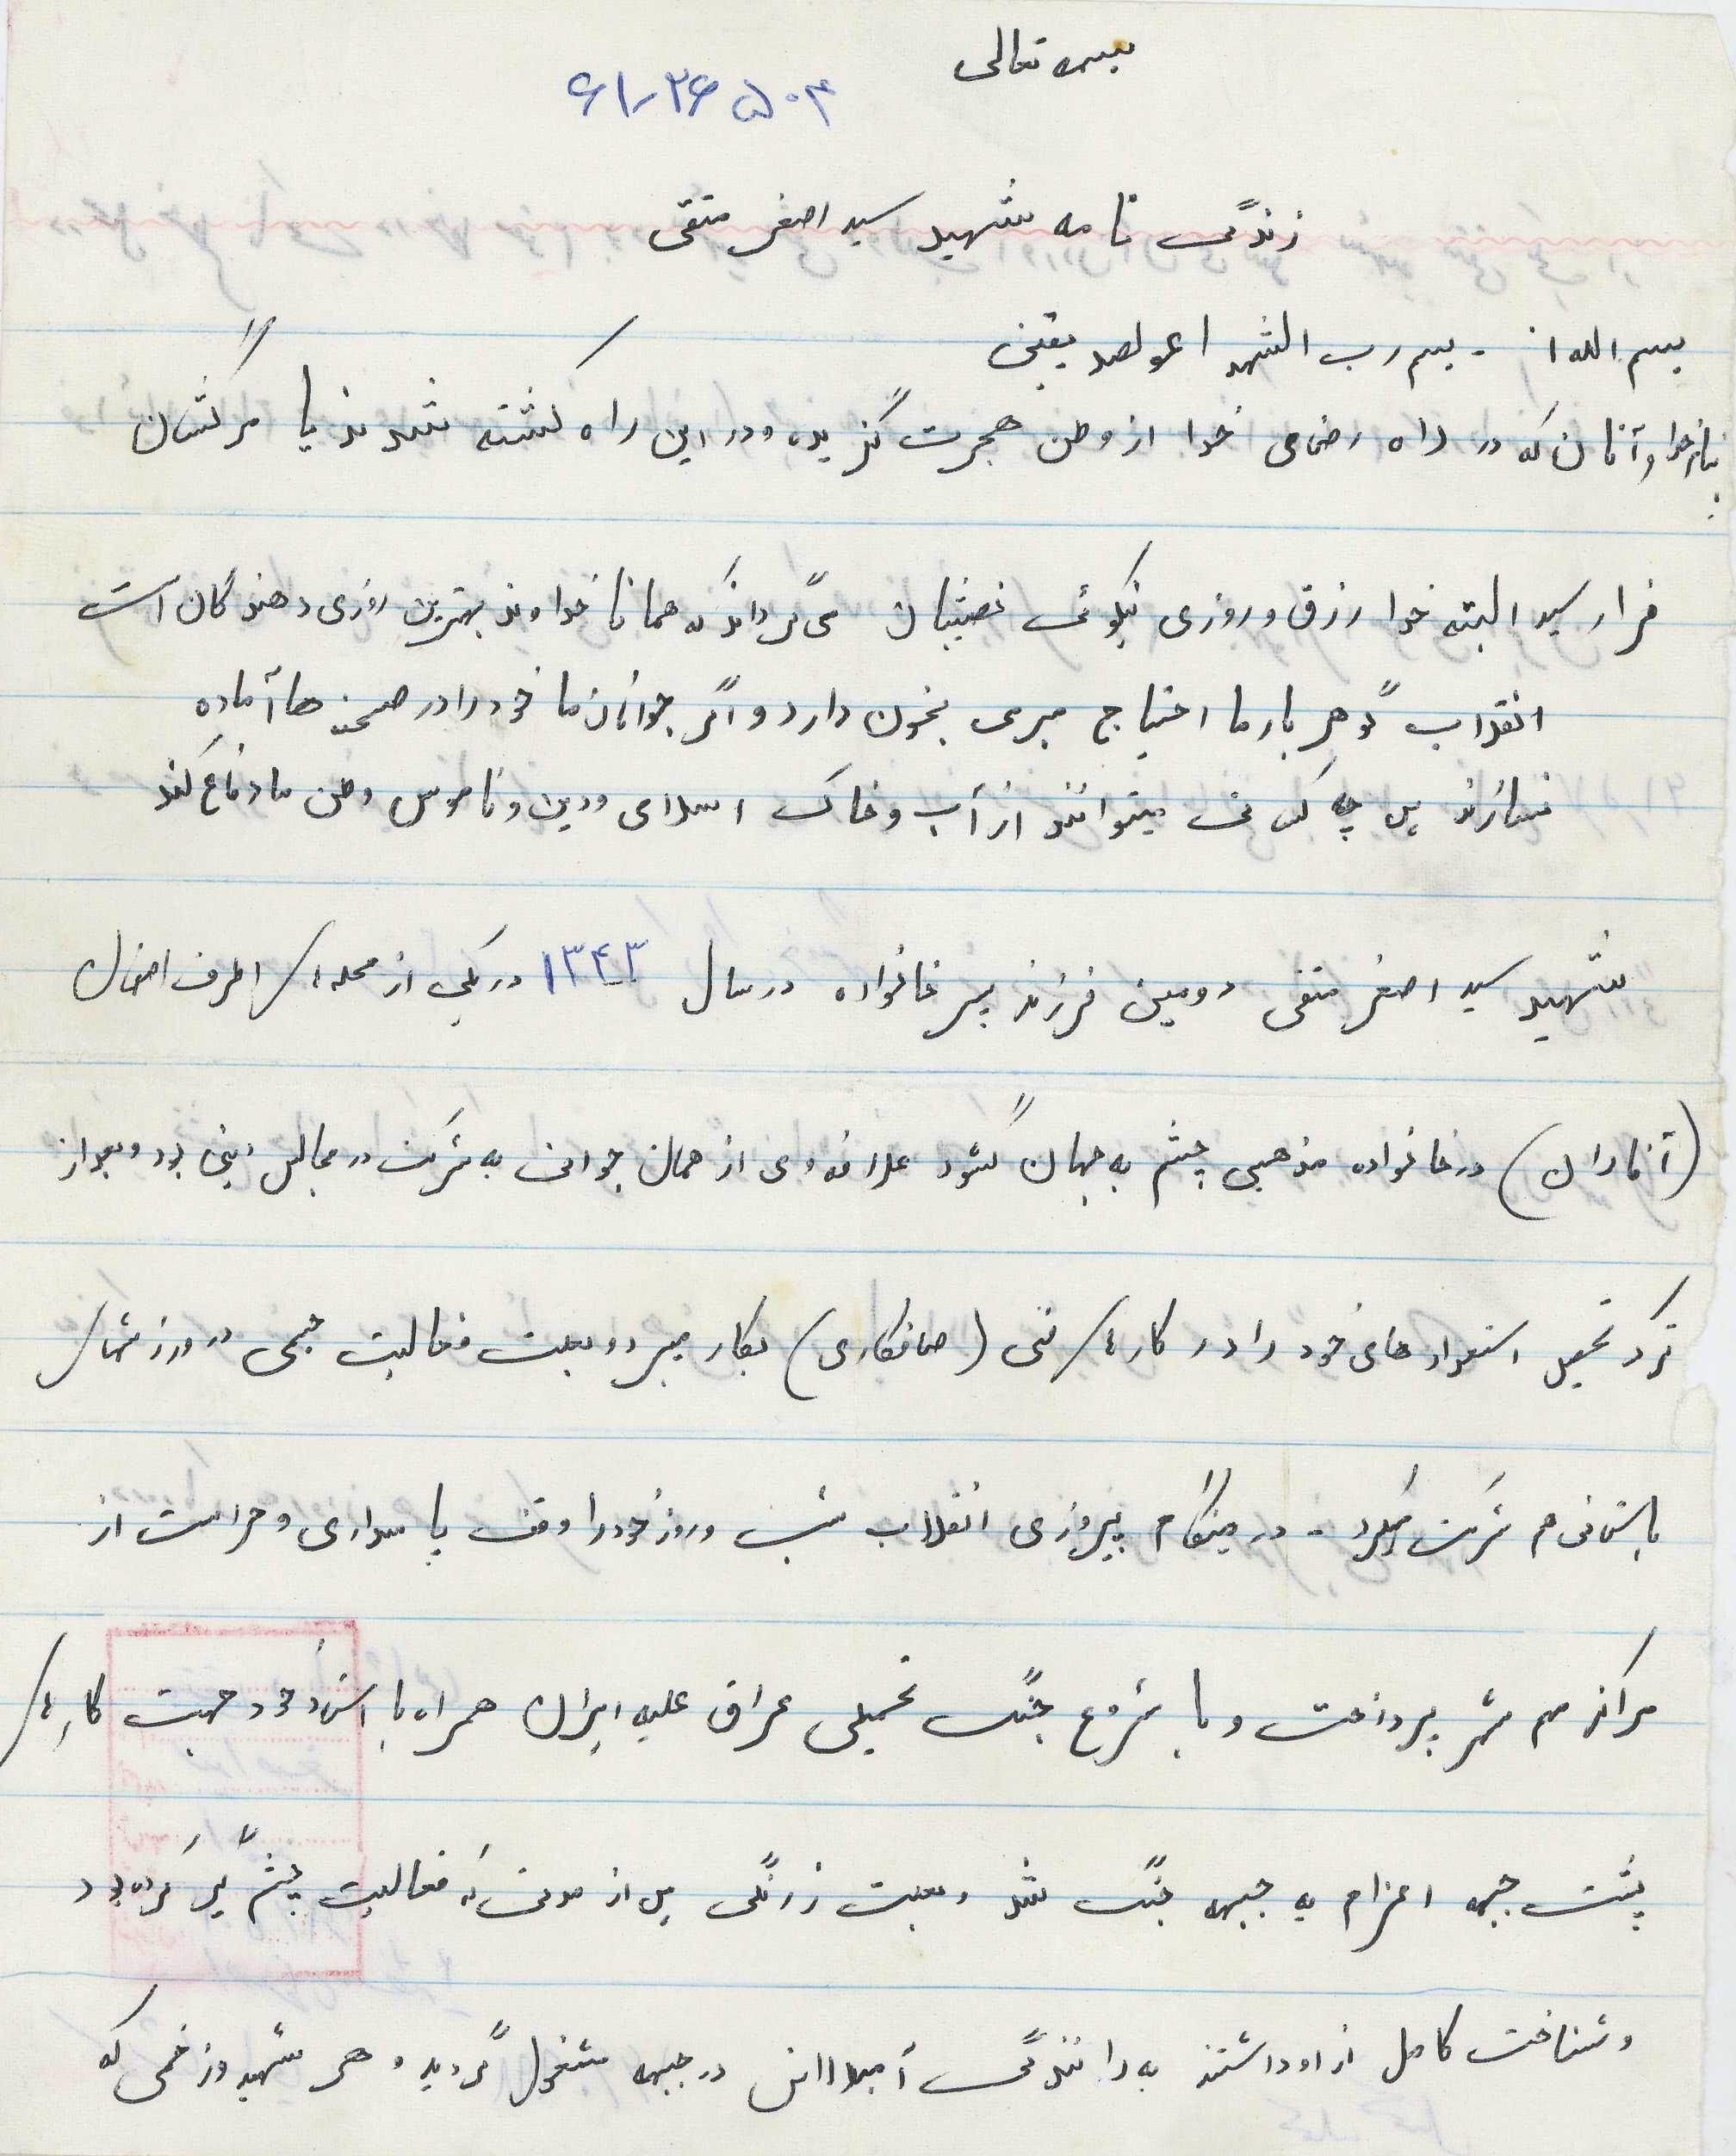 بسمه تعالی
۶۱-۲۶۵۰۳
زندگی نامه شهید سید اصغر متقی
بسم الله ا - بسم رب الشهدا عو لصدیقین
بنام خدا و آنان که در راه رضای خدا از وطن هجرت گزیده و در این راه کشته شدند یا مرگشان
فرا رسید البته خدا رزق و روزی نیکوئی نصیبشان می‌گرداند که همانا خداوند بهترین روزی دهندگان است
انقلاب گوهر بار ما احتیاج مبرمی بخون دارد و اگر جوانان ما خود را در صحنه ها آماده
نسازند پس چه کسانی میتوانند از آب و خاک اسلامی و دین و ناموس وطن ما دفاع کنند
شهید سید اصغر متقی دومین فرزند پسر خانواده در سال ۱۳۴۳ در یکی از محله های اطراف اصفهان
(آناران) در خانواده مذهبی چشم به جهان گشود علاقه وی از همان جوانی به شرکت در مجالس دینی بود و بعد از
ترک تحصیل استعدادهای خود را در کارهای فنی (صافکاری) بکار میبرد و بعلت فعالیت جسمی در ورزشهای
باستانی هم شرکت میکرد - در هنگام پیروزی انقلاب شب و روز خود را وقف پاسداری و حراست از
مراکز مهم شهر پرداخت و با شروع جنگ تحمیلی عراق علیه ایران همراه با استاد خود جهت کارهای
پشت جبهه اعزام به جبهه جنگ شد و بعلت زرنگی پس از مدتی که فعالیت چشم گیر کرده بود
و شناخت کامل از او داشتند به رانندگی آمبولانس در جبهه مشغول گردید و هر شهید و زخمی که